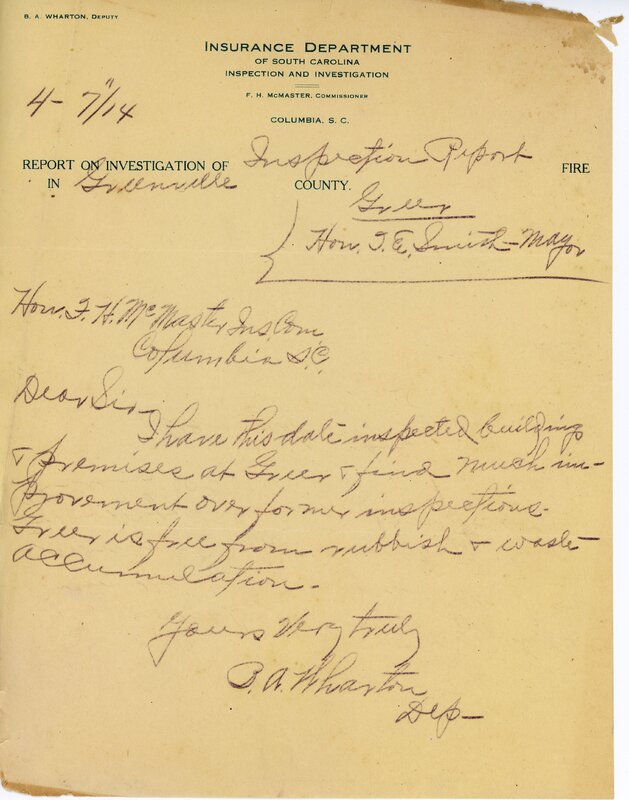 B. A. WHARTON, DEPUTY
INSURANCE DEPARTMENT
OF SOUTH CAROLINA
INSPECTION AND INVESTIGATION
F. H. McMASTER, COMMISSIONER
COLUMBIA, S. C.
4- 7/14
REPORT ON INVESTIGATION OF Inspection Report FIRE
IN Greenville COUNTY.
Greer
Hon. T. E. Smith - Mayor
Hon. F. H. McMaster Ins. Com
Columbia S.C.
Dear Sir-
I have this date inspected building
& premises at Greer & find much im-
provement over former inspections-
Greer is free from rubbish & waste
accumulation-
Yours Very truly
B. A. Wharton
Dep-